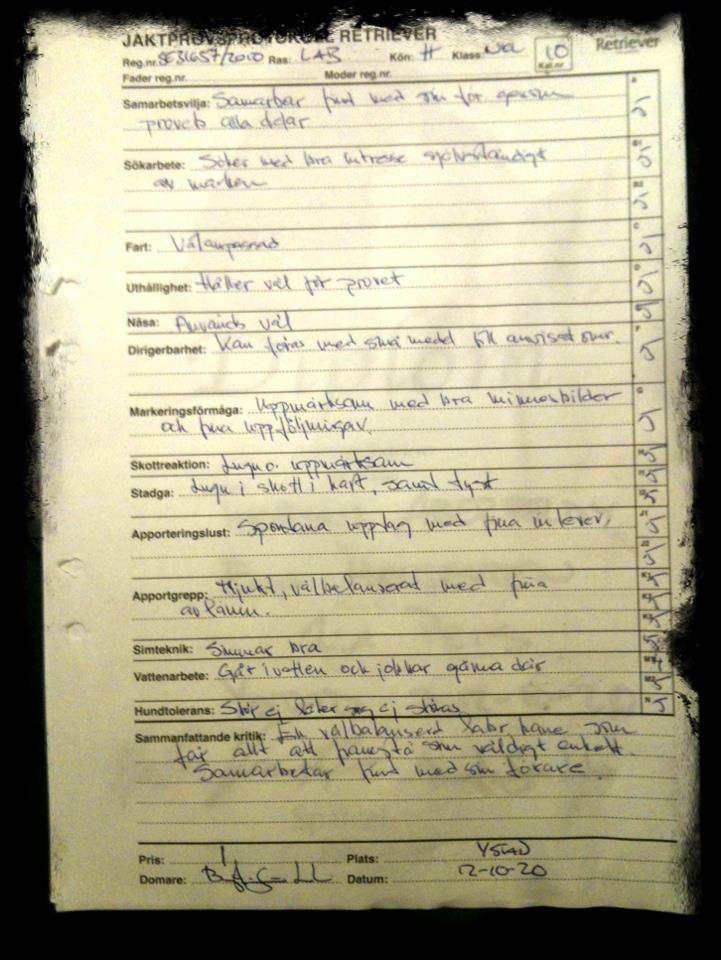 JAKTPROVSPROTOKOLL RETRIEVER
Retriever
Reg.nr. SE31657/2010 Ras: LAB Kön: H Klass: NKL 10
Kat.nr
Fader reg.nr. Moder reg.nr.
Samarbetsvilja: Samarbetar fint med sin för genom
provets alla delar
Sökarbete: Söker med bra intresse självständigt
av marken
Fart: Välanpassad
Uthållighet: Håller väl för provet
Näsa: Används väl
Dirigerbarhet: Kan föras med små medel till anvisat omr.
Markeringsförmåga: Uppmärksam med bra minnesbilder
och fina uppföljningar.
Skottreaktion: Lugn o. uppmärksam
Stadga: Lugn i skott i kast, samt tyst
Apporteringslust: Spontana upptag med fina inlever.
Apportgrepp: Mjukt, välbalanserat med fina
avlämn.
Simteknik: Simmar bra
Vattenarbete: Går i vatten och jobbar gärna där
Hundtolerans: Stör ej låter sig ej störas
Sammanfattande kritik: En välbalanserd labr hane som
får allt att framstå som väldigt enkelt.
Samarbetar fint med sin förare.
Pris: 1 Plats: YSTAD
Domare: Datum: 12-10-20